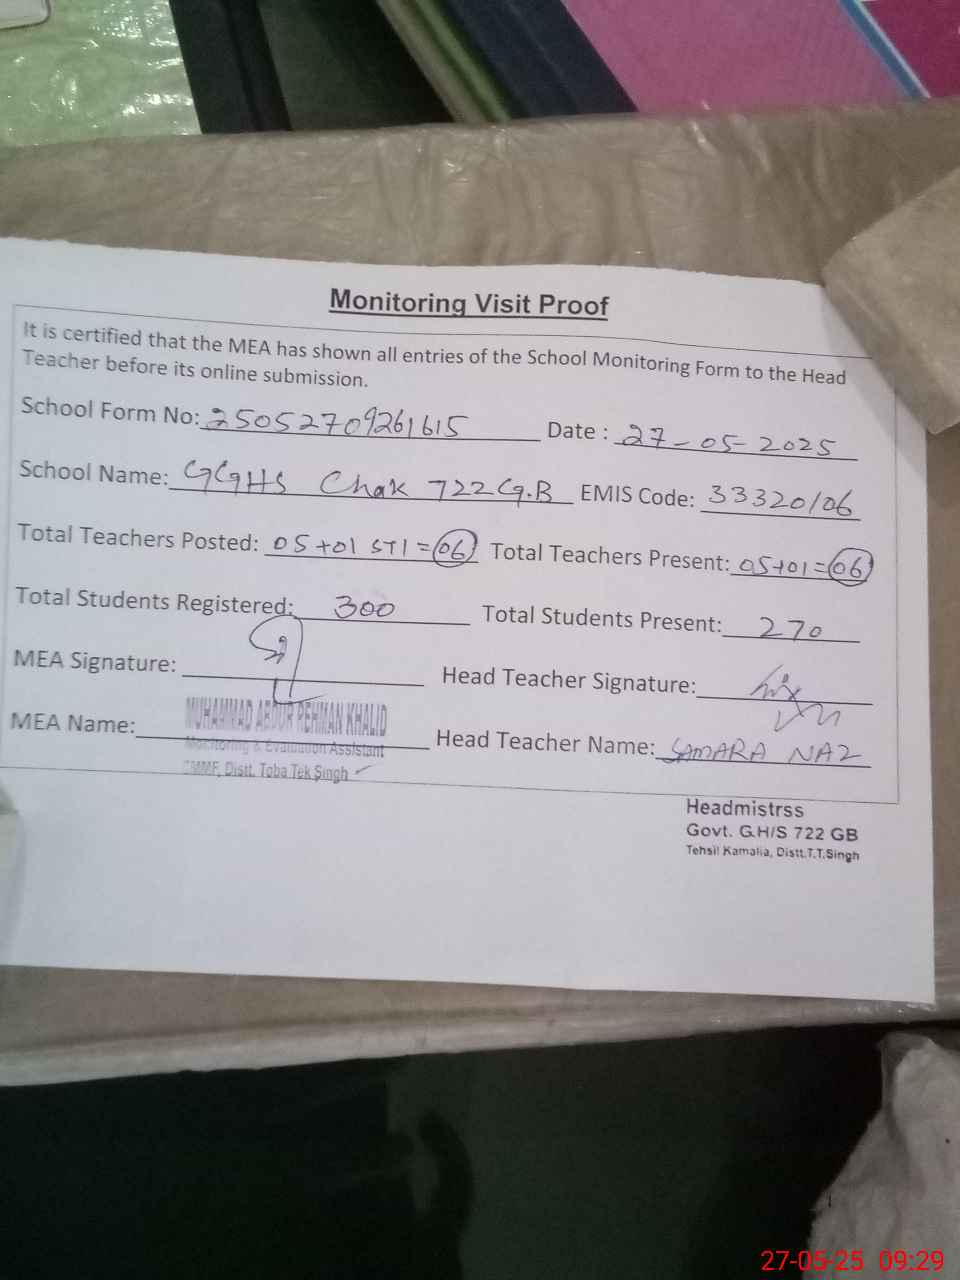 Monitoring Visit Proof
It is certified that the MEA has shown all entries of the School Monitoring Form to the Head
Teacher before its online submission.
School Form No: 25052709261615 Date : 27-05-2025
School Name: GGHS Chak 722 G.B EMIS Code: 33320106
Total Teachers Posted: 05+01 STI=06 Total Teachers Present: 05+01=06
Total Students Registered: 300 Total Students Present: 270
MEA Signature: Head Teacher Signature:
MEA Name: MUHAMMAD ABDUR REHMAN KHALID Head Teacher Name: SAMARA NAZ
Monitoring & Evaluation Assistant
CMMF, Distt. Toba Tek Singh
Headmistrss
Govt. G.H/S 722 GB
Tehsil Kamalia, Distt.T.T.Singh
27-05-25 09:29